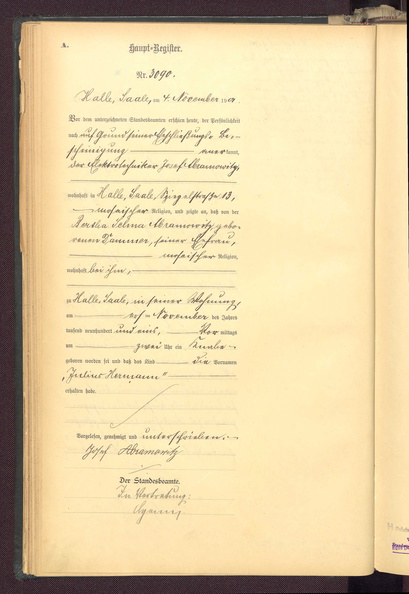 A.
Haupt-Register.
Nr. 3090.
Halle, Saale, am 4. November 1901
Vor dem unterzeichneten Standesbeamten erschien heute, der Persönlichkeit
nach auf Grund seiner Eheschließungs-Be-
scheinigung anerkannt,
der Elektrotechniker Josef Abramowitz,
wohnhaft in Halle, Saale, Spiegelstraße 13,
mosaischer Religion, und zeigte an, daß von der
Bertha Selma Abramowitz, gebo-
renen Kammer, seiner Ehefrau,
mosaischer Religion,
wohnhaft bei ihm,
zu Halle, Saale, in seiner Wohnung,
am November des Jahres
tausend neunhundert und eins, Vormittags
um zwei Uhr ein Knabe
geboren worden sei und daß das Kind die Vornamen
"Julius Hermann"
erhalten habe.
Vorgelesen, genehmigt und unterschrieben:
Josef Abramowitz
Der Standesbeamte.
In Vertretung: